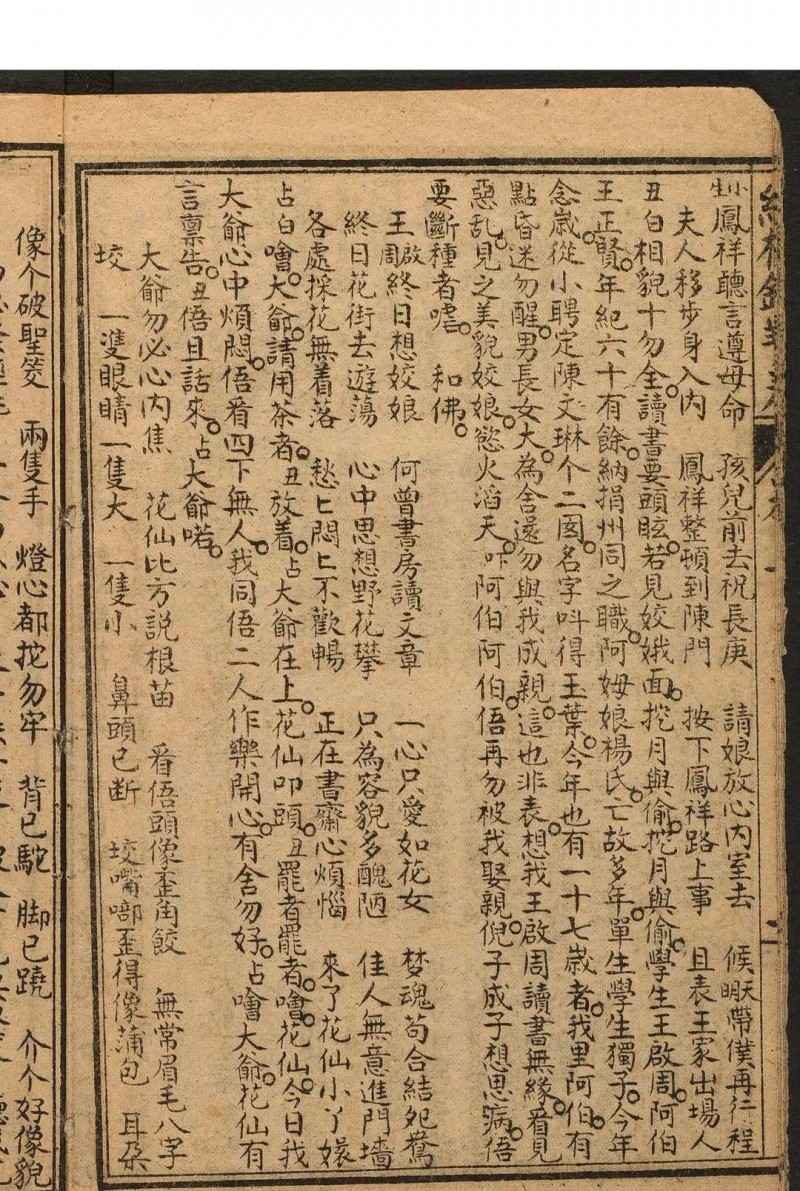 生小鳳祥聽言遵母命　孩兒前去祝長庚　請娘放心內室去　候明天帶僕再行程
夫人移步身入內　鳳祥整頓到陳門　按下鳳祥路上事　且表王家出場人
丑白相貌十勿全。讀書要頭眩。若見姣娥面。挖月與偷。挖月與偷。學生王啟周。阿伯
王正賢。年紀六十有餘。納捐州同之職。阿姆娘楊氏。亡故多年。單生學生獨子。今年
念歲。從小聘定陳文琳个二囡。名字呌得玉葉。今年也有一十七歲者。我里阿伯。有
點昏迷勿醒。男長女大。為舍還勿與我成親。這也非表。想我王啟周讀書無緣。看見
惡乱。見之美貌姣娘。慾火滔天。吓阿伯阿伯。俉再勿被我娶親。倪子成子想思病。俉
要斷種者嘘。　和佛。
王啟周終日想姣娘　何曾書房讀文章　一心只愛如花女　梦魂苟合結夗鴦
終日花街去遊蕩　心中思想野花攀　只為容貌多醜陋　佳人無意進門墻
各處採花無着落　愁匕悶匕不歡暢　正在書齋心煩惱　來了花仙小丫嬛
占白噲。大爺。請用茶者。丑放着。占大爺在上。花仙叩頭。丑罷者罷者。噲。花仙。今日我
大爺心中煩悶。俉看四下無人。我同俉二人作樂開心。有舍勿好。占噲大爺。花仙有
言禀告。丑俉且話來。占大爺喏。
大爺勿必心內焦　花仙比方説根苗　看俉頭像歪角餃　無常眉毛八字
垵　一隻眼睛一隻大　一隻小　鼻頭已断　垵嘴啣歪得像蒲包　耳朶
像个破聖筊　兩隻手　燈心都挖勿牢　背已駝　脚已蹺　介个好像貌